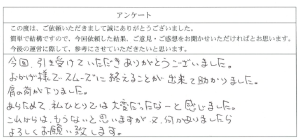 アンケート
この度は、ご依頼いただきまして誠にありがとうございました。
簡単で結構ですので、今回依頼した結果、ご意見・ご感想をお聞かせいただければとお思います。
今後の運営に際して、参考にさせていただきたいと思います。
今回、引き受けていただきありがとうございました。
おかげ様でスムーズに終えることが出来て助かりました。
肩の荷が下りました。
あらためて、私にとっては大変だったなーと感じました。
これからは、もうないと思いますが又、何かありましたら
よろしくお願い致します。